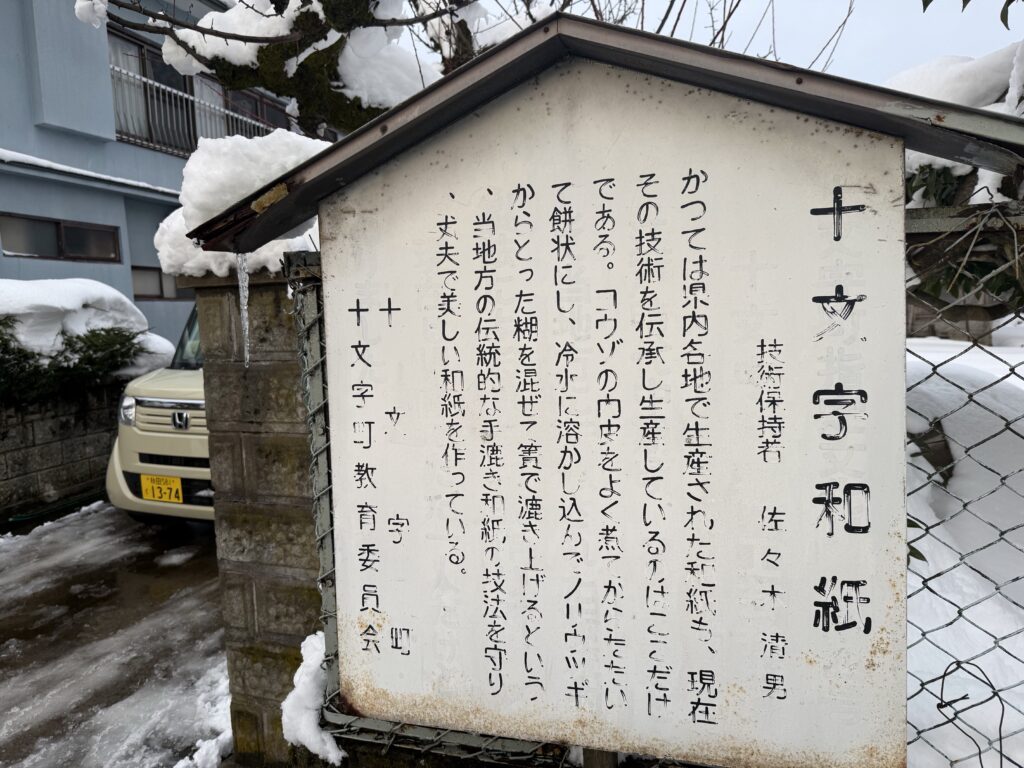 十文字和紙
技術保持者 佐々木清男
かつては県内各地で生産された和紙も、現在
その技術を伝承し生産しているのはここだけ
である。コウゾの内皮をよく煮てからたたい
て餅状にし、冷水に溶かし込んでノリウツギ
からとった糊を混ぜて簀で漉き上げるという
、当地方の伝統的な手漉き和紙の技法を守り
、丈夫で美しい和紙を作っている。
十文字町
十文字町教育委員会
秋田581
13-74